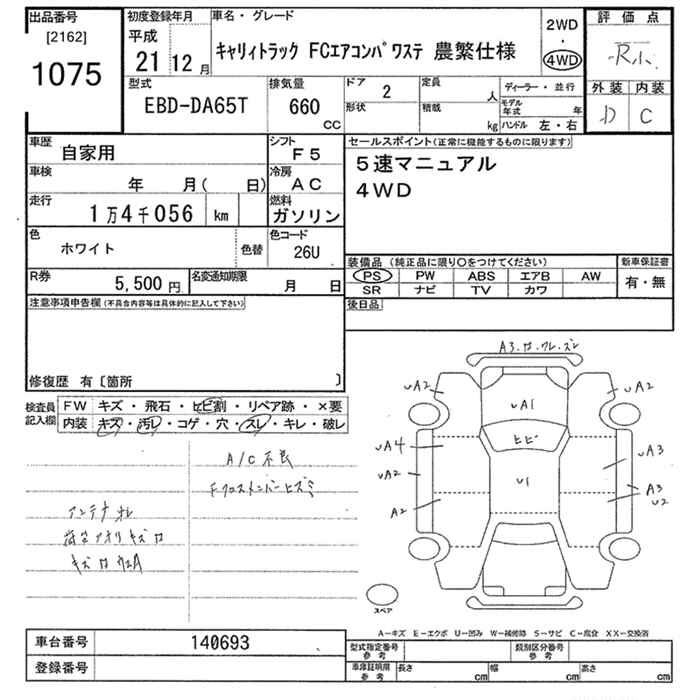 出品番号
[2162]
1075
初度登録年月
平成
21 12 月
車名・グレード
キャリィトラック FCエアコンパワステ 農繁仕様
2WD
・
4WD
評価点
R
外装 内装
D C
型式
EBD-DA65T
排気量
660
CC
ドア 2
形状
定員 人
積載 kg
ディーラー・並行
モデル年式 年
ハンドル 左・右
車歴
自家用
シフト
F5
車検
年 月( 日)
冷房
AC
走行
1万4千056 km
燃料
ガソリン
色
ホワイト
色替
色コード
26U
R券
5,500 円
名変通知期限
月 日
セールスポイント(正常に機能するものに限ります)
5速マニュアル
4WD
装備品(純正品に限り○をつけてください)
新車保証書
PS PW ABS エアB AW
SR ナビ TV カワ
有・無
後日品
注意事項申告欄(不具合内容等は具体的に記入して下さい)
修復歴 有〔箇所 〕
検査員記入欄
FW キズ・飛石・ヒビ割・リペア跡・×要
内装 キズ・汚レ・コゲ・穴・スレ・キレ・破レ
A/C不良
Fクロスメンバーヒズミ
アンテナオレ
アオリキズ
A3
UA2
UA2
UA1
ヒビ
UA4
UA3
UA2
U1
A3
U2
A2
スペア
A-キズ E-エクボ U-凹み W-補修跡 S-サビ C-腐食 XX-交換済
車台番号
140693
登録番号
型式指定番号
参考
類別区分番号
参考
車庫証明用
参考
長さ cm 幅 cm 高さ cm